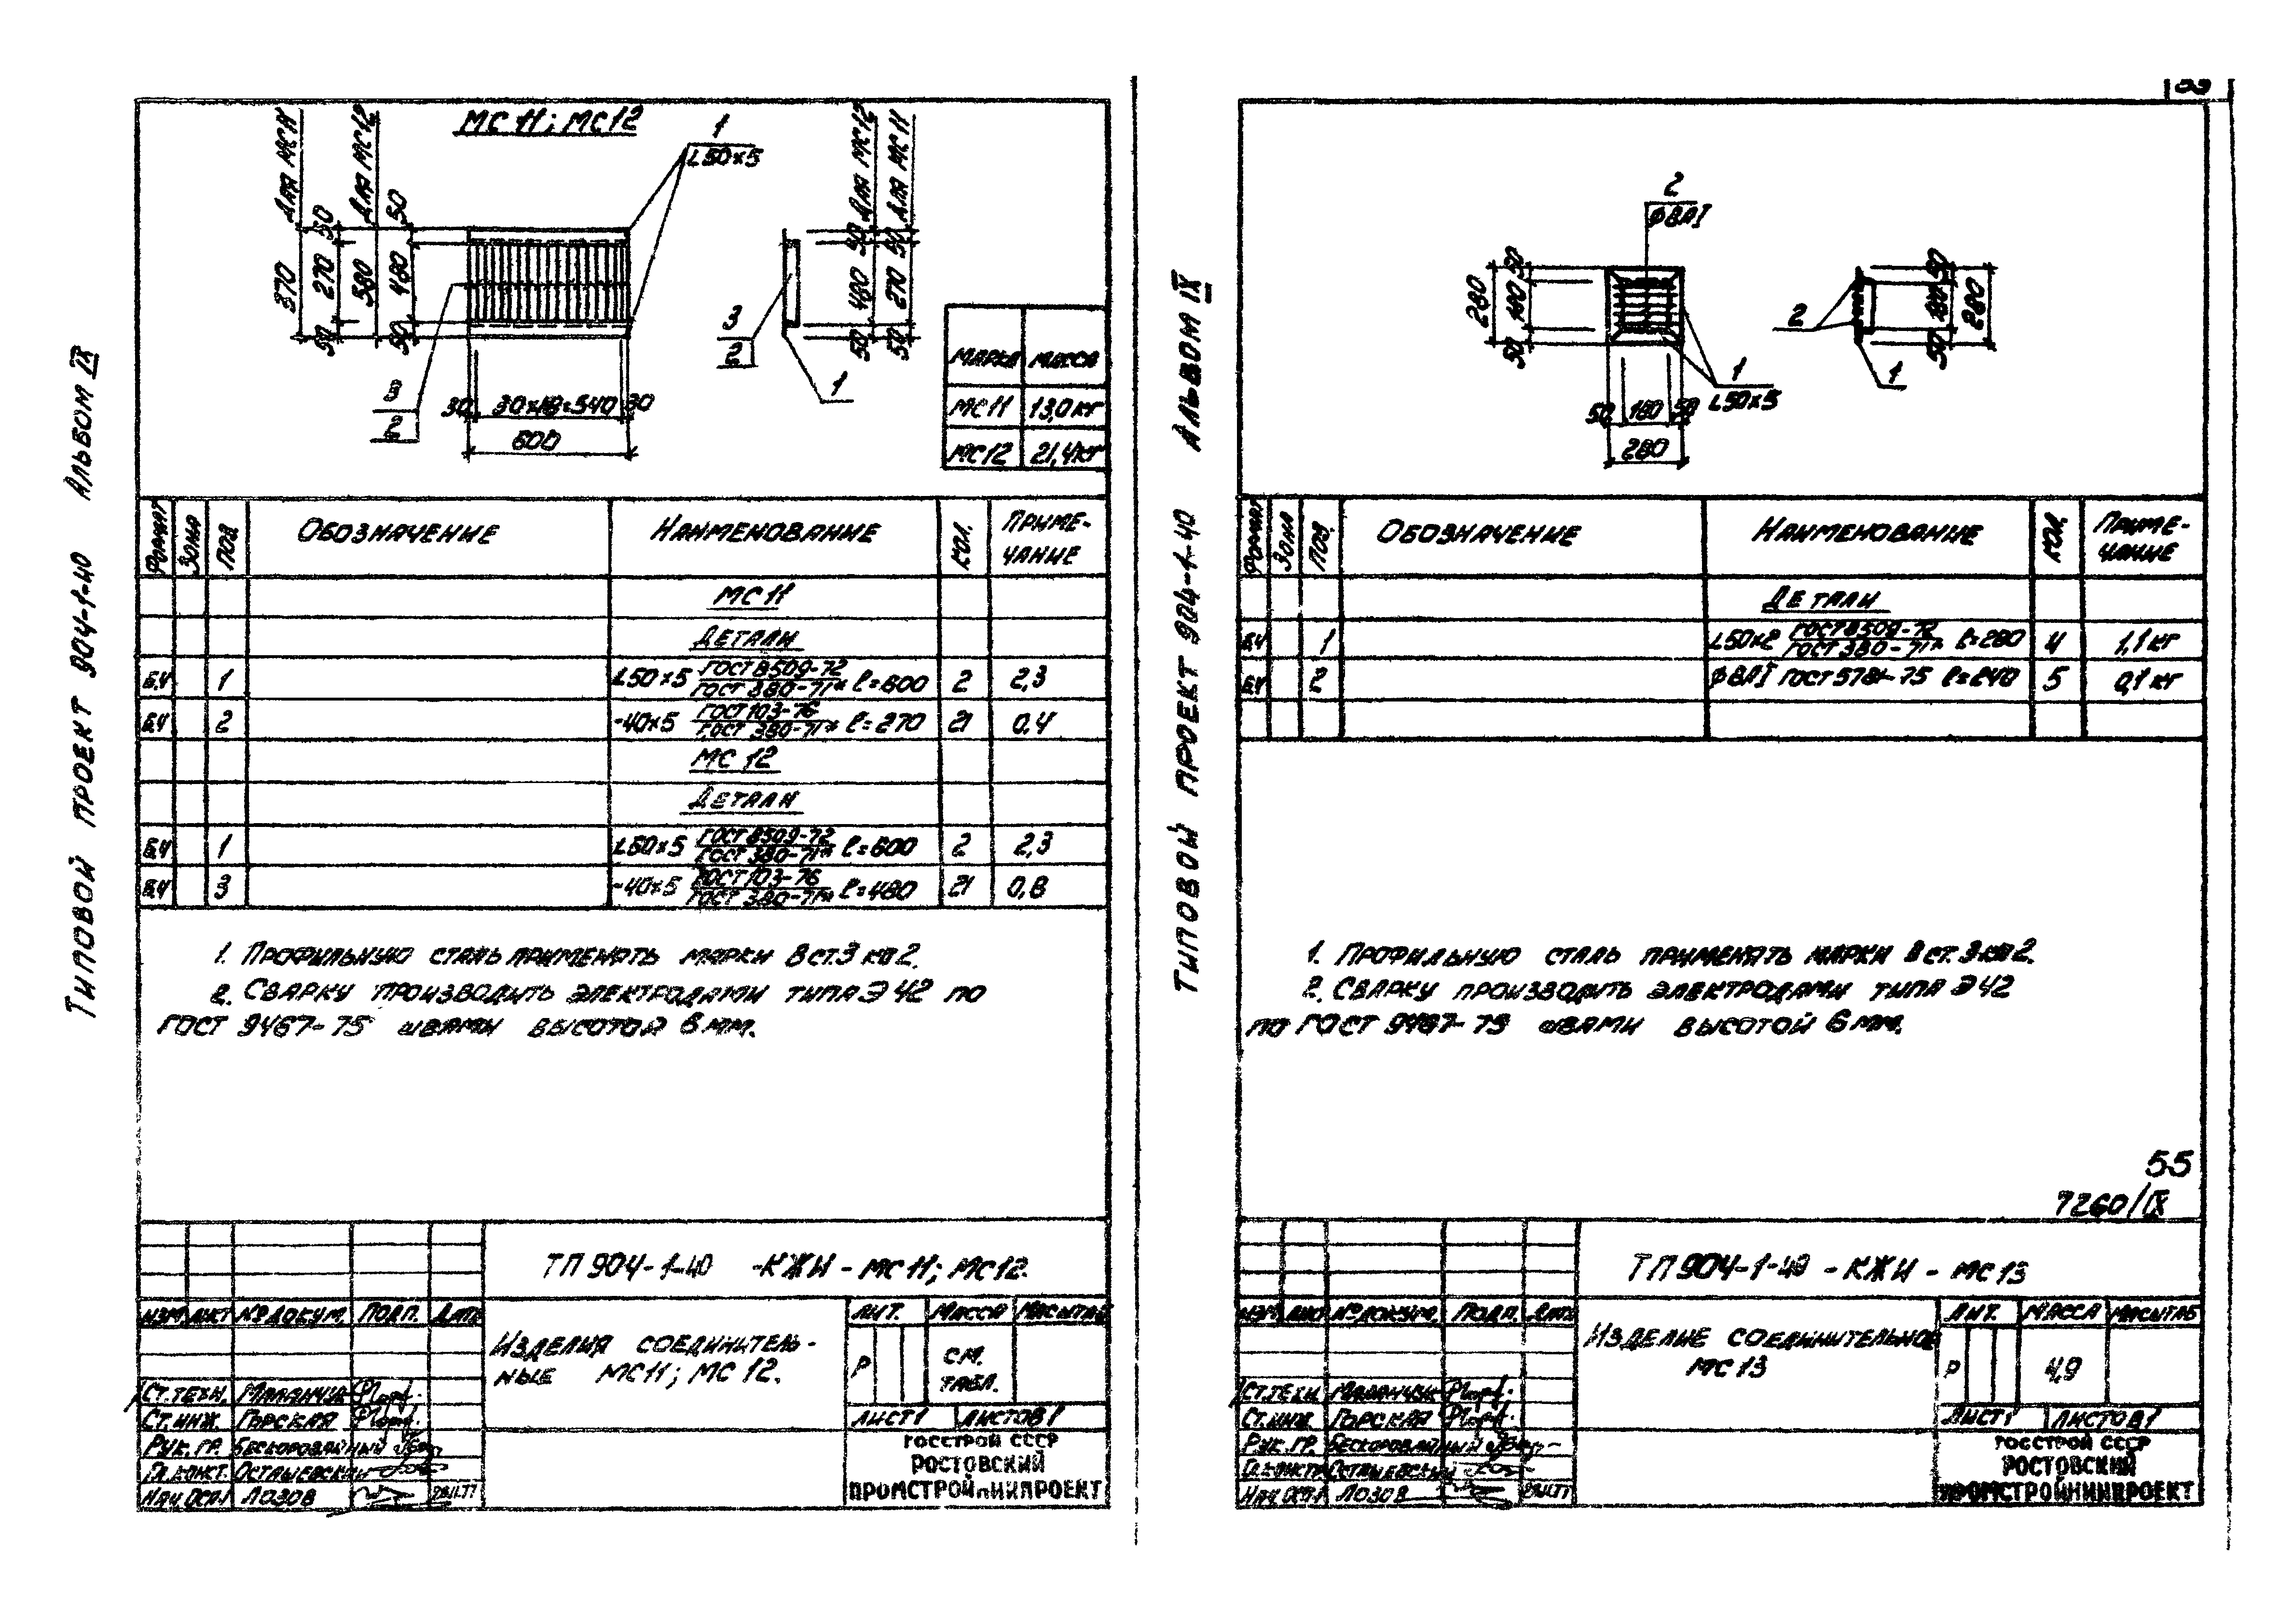 ТИПОВОЙ ПРОЕКТ 904-1-40 АЛЬБОМ IX
МС11; МС12
1
L50×5
ДЛЯ МС11
ДЛЯ МС12
ДЛЯ МС12
ДЛЯ МС11
370
50
270
50
580
50
480
50
50
480
50
50
270
50
3
2
3
2
1
30 30×18=540 30
600
МАРКА МАССА
МС11 13,0кг
МС12 21,4кг
ФОРМАТ ЗОНА ПОЗ. ОБОЗНАЧЕНИЕ НАИМЕНОВАНИЕ КОЛ. ПРИМЕ-
ЧАНИЕ
МС11
ДЕТАЛИ
БЧ 1 L50×5 ГОСТ 8509-72 / ГОСТ 380-71* ℓ=600 2 2,3
БЧ 2 -40×5 ГОСТ 103-76 / ГОСТ 380-71* ℓ=270 21 0,4
МС 12
ДЕТАЛИ
БЧ 1 L50×5 ГОСТ 8509-72 / ГОСТ 380-71* ℓ=600 2 2,3
БЧ 3 -40×5 ГОСТ 103-76 / ГОСТ 380-71* ℓ=480 21 0,8
1. ПРОФИЛЬНУЮ СТАЛЬ ПРИМЕНЯТЬ МАРКИ В СТ.3 КП2.
2. СВАРКУ ПРОИЗВОДИТЬ ЭЛЕКТРОДАМИ ТИПА Э 42 ПО
ГОСТ 9467-75 ШВАМИ ВЫСОТОЙ 6 ММ.
ТП 904-1-40 -КЖИ - МС11; МС12.
ИЗМ. ЛИСТ № ДОКУМ. ПОДП. ДАТА
ИЗДЕЛИЯ СОЕДИНИТЕЛЬ-
НЫЕ МС11; МС 12.
ЛИТ. МАССА МАСШТАБ
Р СМ.
ТАБЛ.
ЛИСТ 1 ЛИСТОВ 1
СТ.ТЕХН. МАЛАНЧУК
СТ.ИНЖ. ГОРСКАЯ
РУК. ГР. БЕСКОРОВАЙНЫЙ
ГЛ.КОНСТ. ОСТАШЕВСКИЙ
НАЧ.ОСП-1 ЛОЗОВ
ГОССТРОЙ СССР
РОСТОВСКИЙ
ПРОМСТРОЙНИИПРОЕКТ
ТИПОВОЙ ПРОЕКТ 904-1-40 АЛЬБОМ IX
2
Ф8АI
280
50
180
50
2
1
50
180
50
280
1
L50×5
50 180 50
280
ФОРМАТ ЗОНА ПОЗ. ОБОЗНАЧЕНИЕ НАИМЕНОВАНИЕ КОЛ. ПРИМЕ-
ЧАНИЕ
ДЕТАЛИ
БЧ 1 ГОСТ 8509-72 / ГОСТ 380-71* ℓ=280 4 1,1 кг
БЧ 2 Ф8АI ГОСТ 5781-75 ℓ=240 5 0,1 кг
1. ПРОФИЛЬНУЮ СТАЛЬ ПРИМЕНЯТЬ МАРКИ В СТ. 3 КП 2.
2. СВАРКУ ПРОИЗВОДИТЬ ЭЛЕКТРОДАМИ ТИПА Э42
ПО ГОСТ 9467-75 ШВАМИ ВЫСОТОЙ 6 ММ.
55
7260/IX
ТП 904-1-40 - КЖИ - МС13
ИЗМ. ЛИСТ № ДОКУМ. ПОДП. ДАТА
ИЗДЕЛИЕ СОЕДИНИТЕЛЬНОЕ
МС 13
ЛИТ. МАССА МАСШТАБ
Р 4,9
ЛИСТ 1 ЛИСТОВ 1
СТ.ТЕХН. МАЛАНЧУК
СТ.ИНЖ. ГОРСКАЯ
РУК. ГР. БЕСКОРОВАЙНЫЙ
ГЛ.КОНСТ. ОСТАШЕВСКИЙ
НАЧ.ОСП-1 ЛОЗОВ
ГОССТРОЙ СССР
РОСТОВСКИЙ
ПРОМСТРОЙНИИПРОЕКТ